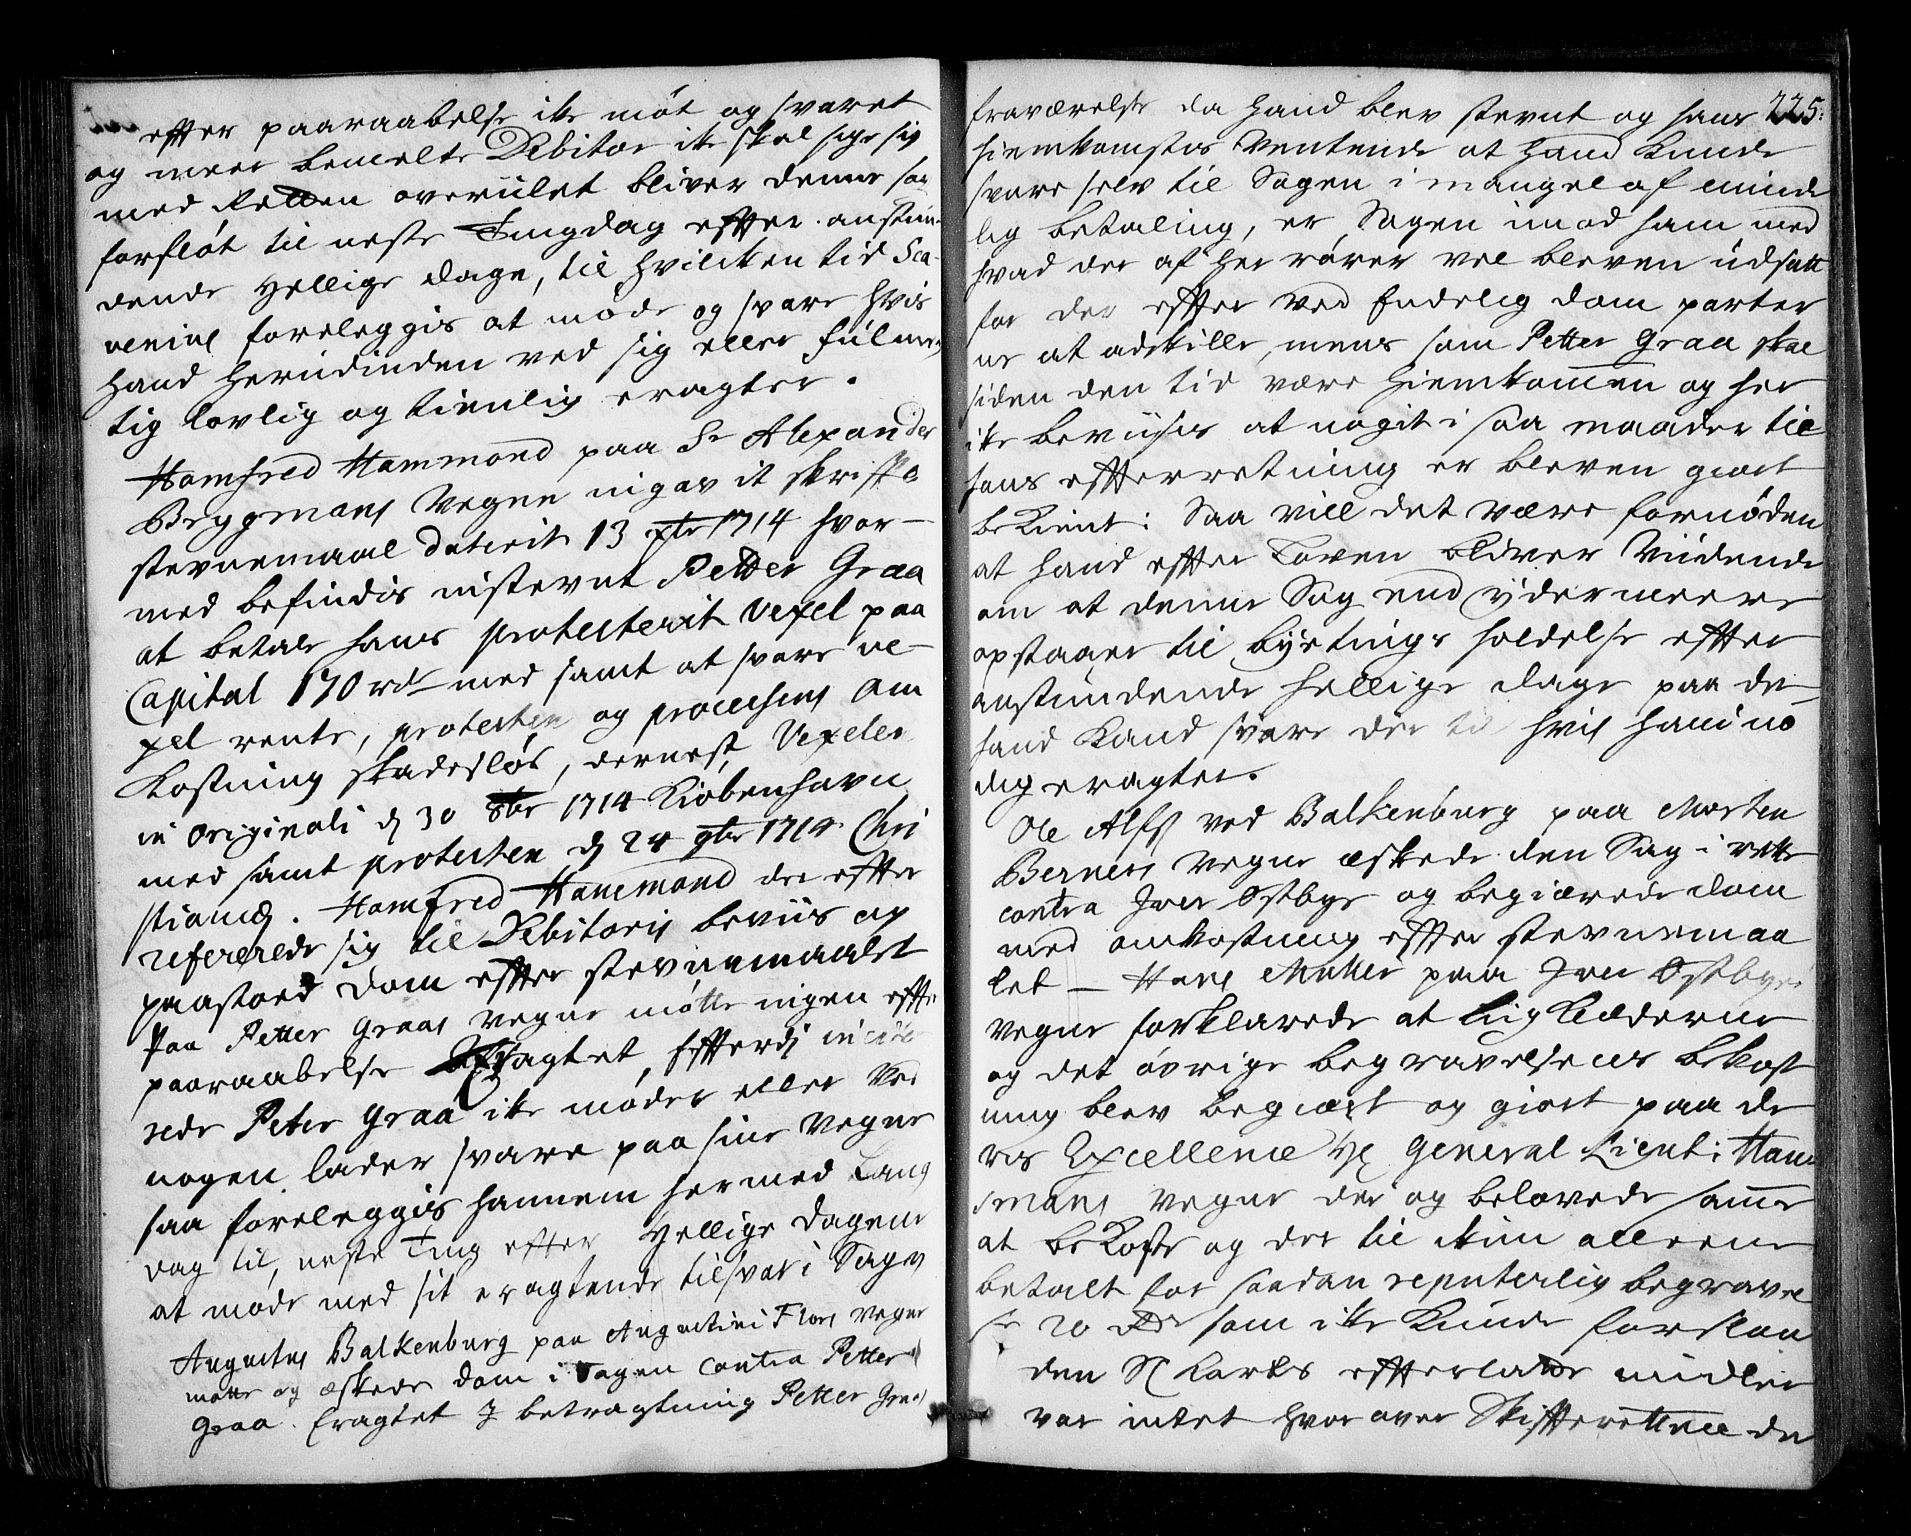 efter paaraabelse ike møt og svaret
og meer bemelte Debitor ike skal sige sig
med Retten overiilet bliver denne sag
forfløt til neste Tingdag efter anstun-
dende Hellige dage, til hvilcken tid Sca-
venius foreleggis at møde og svare hvis
hand herudinden ved sig eller fuldmeg
tig lovlig og tienlig eragter.
Homfred Hammond paa Sr Alexander
Bryggmans Vegne ingav it skriftl
stevnemaal daterit 13 xbr 1714 hvor-
med befindis instevnt Petter Graa
at betale hans protesterit Vexel paa
Capital 170 rd med samt at svare ve-
xel rente, protesten og processens om
kostning skadesløs, dernest Vexelen
in originali d 30 8br 1714 Kiøbenhavn
med samt protesten d 24 9br 1714 Chri
stiania. Homfred Hanemand der efter
refererede sig til Debitoris beviis og
paastoed dom efter stevnemaalet
Paa Petter Graas Vegne møtte ingen efter
paaraabelse Eragtet, Efterdj
Peter Graa ike møder eller ved
nogen lader svare paa sine Vegne
saa foreleggis hannem hermed Laug
dag til neste Ting efter Hellige dagene
at møde med sit eragtende tilsvar i Sagen
Augustus Balkenburg paa Augustini Flors Vegne
møtte og æskede dom i Sagen contra Petter
Graa. Eragtet J betragtning Petter Graas
225.
fraværelse da hand blev stevnt og hans
hiemkomstes Ventende at hand kunde
svare selv til Sagen i mangel af minde
lig betaling, er Sagen imod ham med
hvad der af her rører vel bleven udsatt
for der efter ved Endelig dom parter
ne at adskille, mens som Petter Graa skal
siden den tid være hiemkomen og her
ike beviises at nogit i saa maader til
hans efterretning er bleven giort
bekient: Saa vill det være fornøden
at hand efter Loven bliver Viidende
om at denne Sag end ydermeere
opstaaer til Byetings holdelse efter
anstundende hellige dage paa de
hand kand svare der til hvis hand nø
dig eragter.
Ole Alfs ved Balkenburg paa Morten
Berners Vegne æskede den Sag i rette
contra Iver Østbye og begiærede dom
med omkostning efter stevnemaa
let – Hans Muller paa Iver Østbyes
Vegne forklarede at Liigklæderne
og det øvrige begravelsens bekost
ning blev begiært og giort paa de
res Excellence H General Lieut: Haus
mans Vegne der og belovede samme
at bekoste og der til ikun alleene
betalt for saadan reputerlig begravel
se 20 rdr som ike kunde forslaa
den Sl Karls efterlatte midler
var intet hvor over Skifteretten de